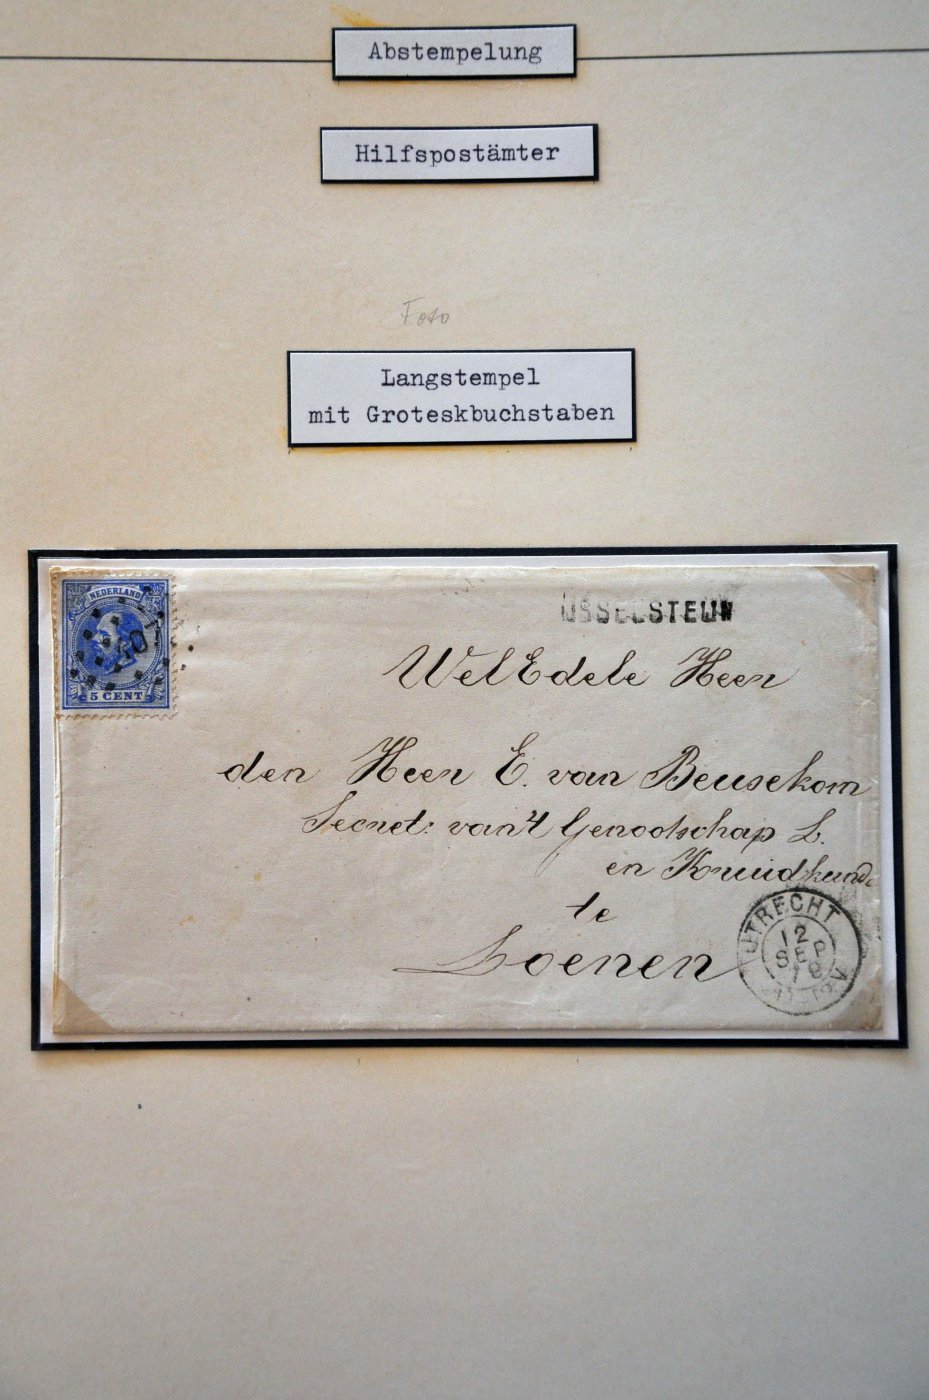 Abstempelung
Hilfspostämter
Foto
Langstempel
mit Groteskbuchstaben
NEDERLAND
107
5 CENT
IJSSELSTEIJN
WelEdele Heer
den Heer E. van Beusekom
Secret: van't Genootschap L.
en Kruidkunde
te
Loenen
UTRECHT
12
SEP